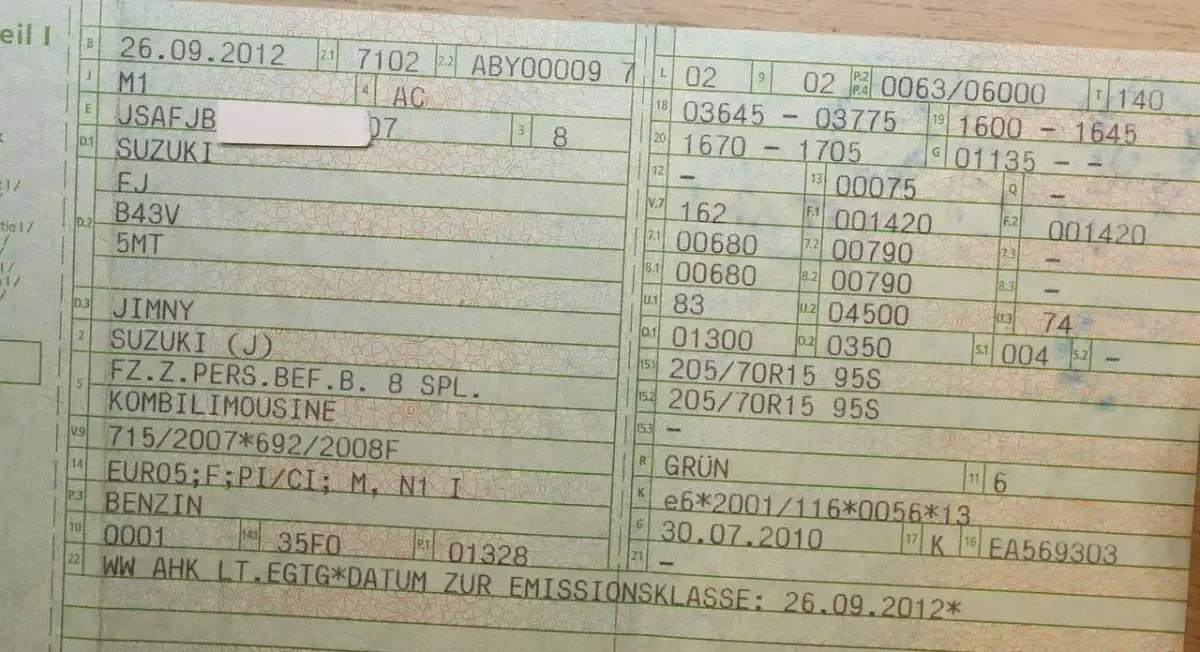 eil I
B 26.09.2012 2.1 7102 2.2 ABY00009 7
J M1 4 AC
E JSAFJB 07 3 8
D.1 SUZUKI
D.2 FJ
B43V
5MT
D.3 JIMNY
2 SUZUKI (J)
5 FZ.Z.PERS.BEF.B. 8 SPL.
KOMBILIMOUSINE
V.9 715/2007*692/2008F
14 EURO5;F;PI/CI; M, N1 I
P.3 BENZIN
10 0001 14.1 35F0 P.1 01328
22 WW AHK LT.EGTG*DATUM ZUR EMISSIONSKLASSE: 26.09.2012*
L 02 9 02 P.2 P.4 0063/06000 T 140
18 03645 - 03775 19 1600 - 1645
20 1670 - 1705 G 01135 - -
12 - 13 00075 Q -
V.7 162 F.1 001420 F.2 001420
7.1 00680 7.2 00790 7.3 -
8.1 00680 8.2 00790 8.3 -
U.1 83 U.2 04500 U.3 74
O.1 01300 O.2 0350 S.1 004 S.2 -
15.1 205/70R15 95S
15.2 205/70R15 95S
15.3 -
R GRÜN 11 6
K e6*2001/116*0056*13
6 30.07.2010 17 K 16 EA569303
21 -